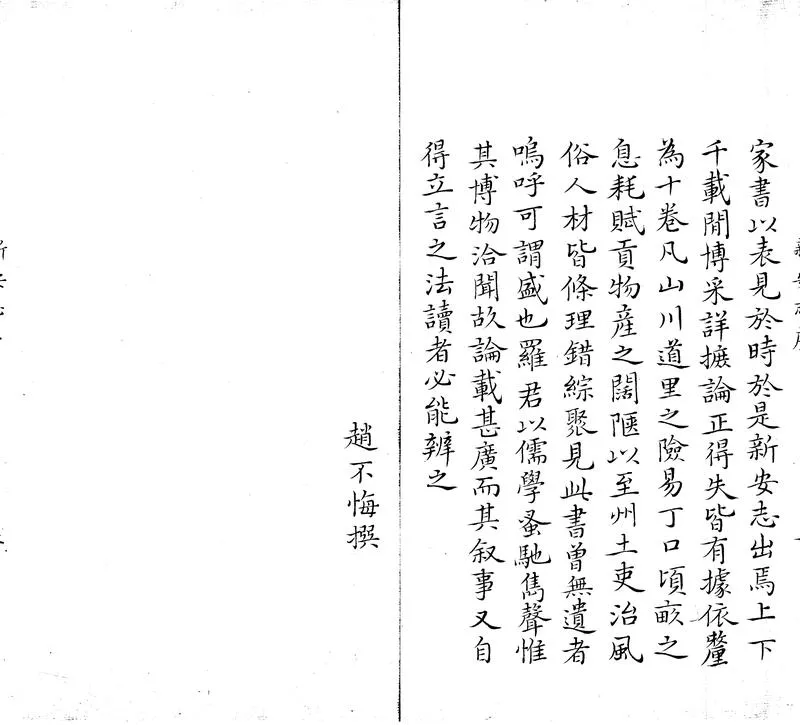 家書以表見於時於是新安志出焉上下
千載間博采詳摭論正得失皆有據依釐
為十卷凡山川道里之險易丁口頃畝之
息耗賦貢物產之闊陿以至州土吏治風
俗人材皆條理錯綜聚見此書曾無遺者
嗚呼可謂盛也羅君以儒學蚤馳雋聲惟
其博物洽聞故論載甚廣而其叙事又自
得立言之法讀者必能辨之
趙不悔撰